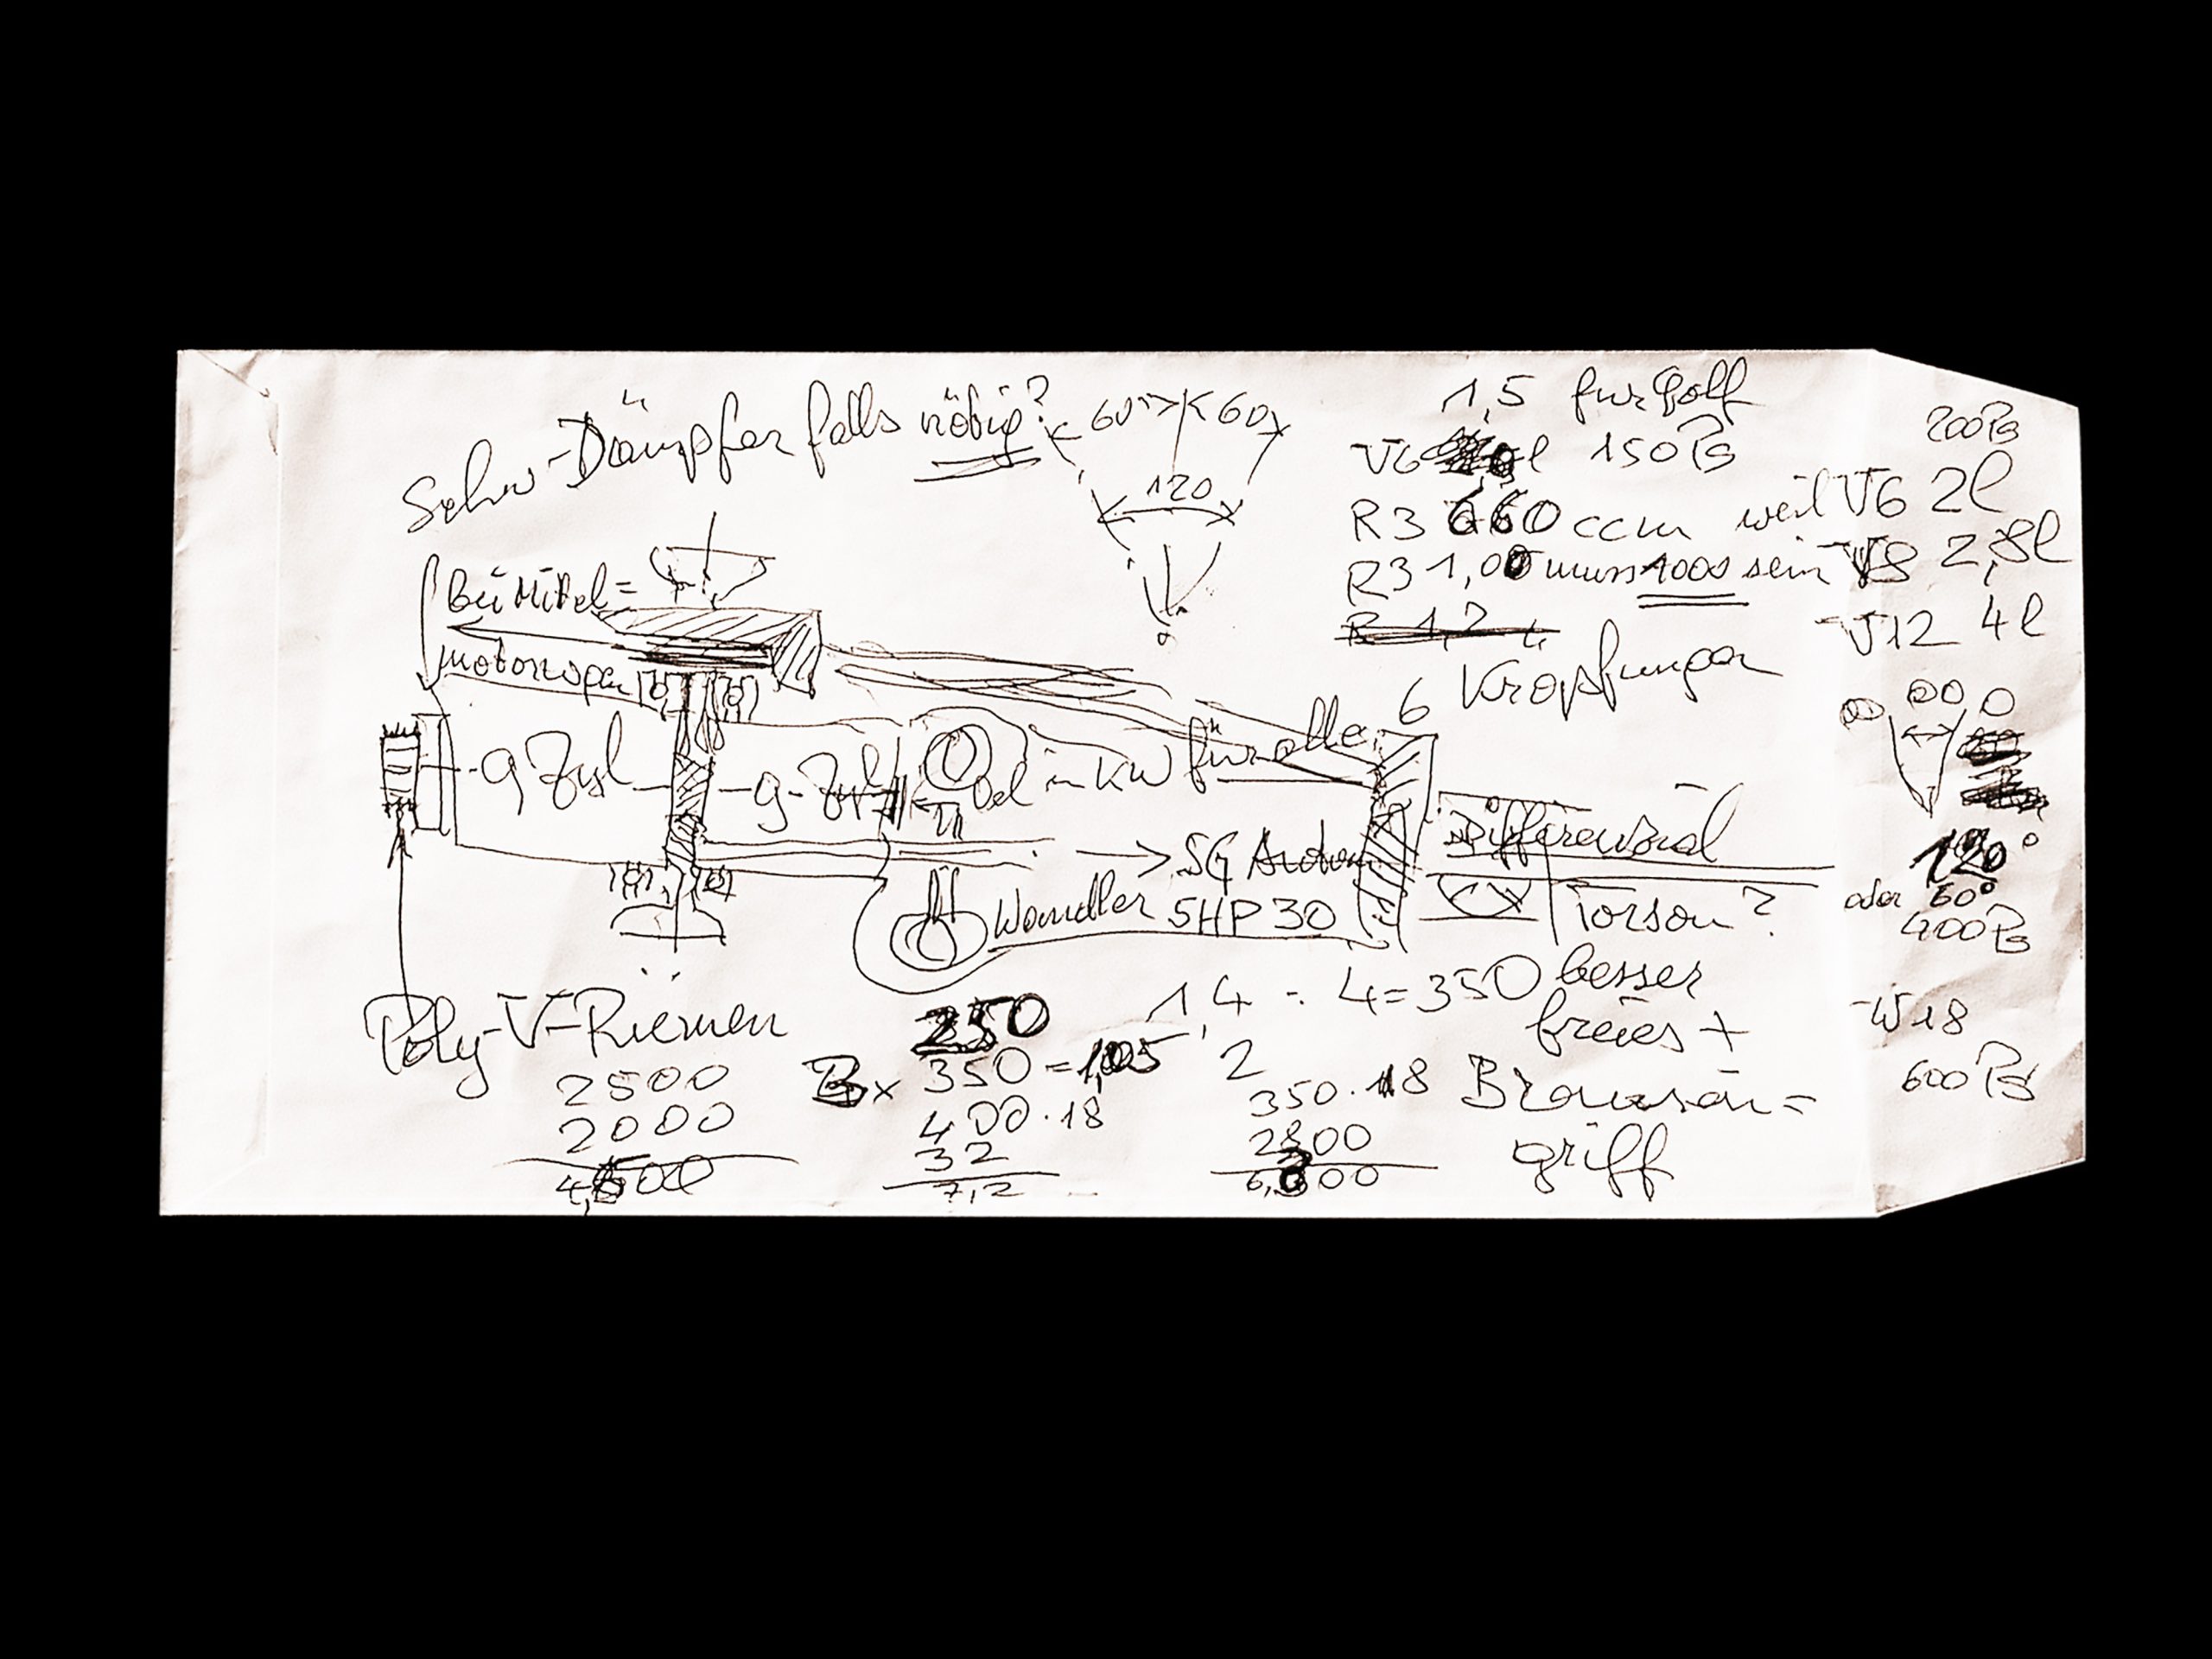 Schw-Dämpfer falls nötig?
60° 60
120
1,5 für Golf
V6 l 150 Ps
R3 660 ccm weil V6 2l
R3 1,00 muss 1000 sein V8 2,8l
R 1,2
V12 4l
200Ps
6 Kröpfungen
bei Mittel=
motorwagen
9 Zyl
9-Zyl
Öel in KW für alle
→ 5G Autom
Wandler 5HP30
Differenzial
Torsen?
120°
oder 60°
400Ps
W18
600 Ps
besser
freies +
Bremsein=
griff
Poly-V-Riemen
2500
2000
4,500
250
3x 350 = 1,05
400·18
32
7,2
1,4 : 4=350
2
350·18
2800
6,300